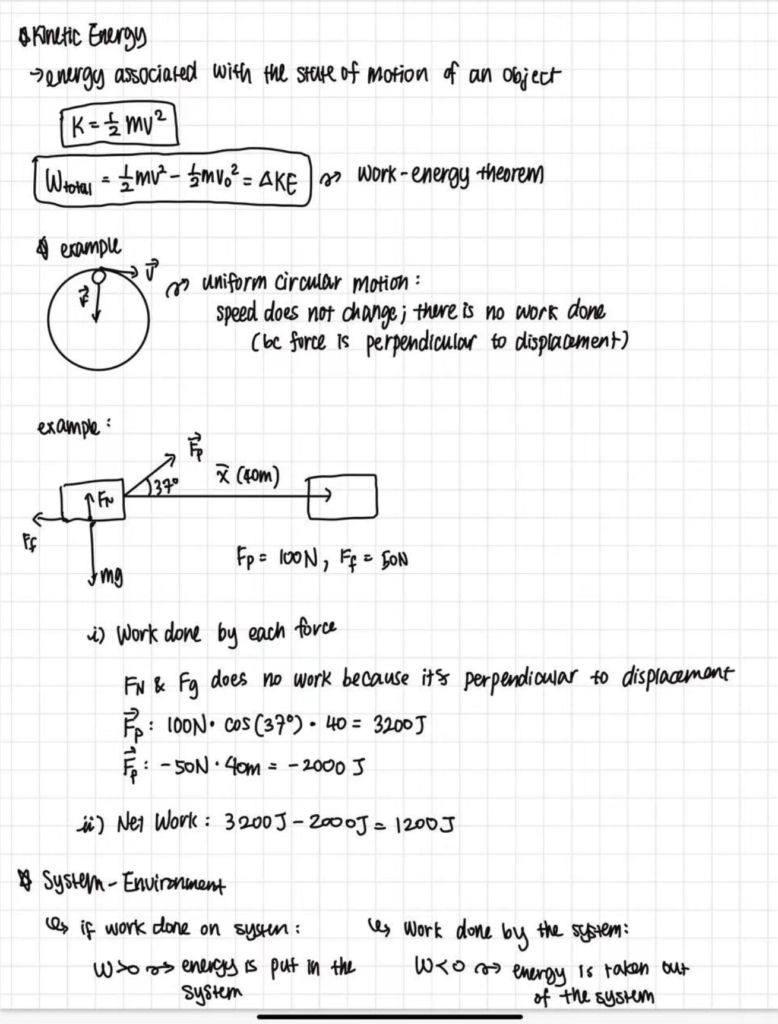 Kinetic Energy
→ energy associated with the state of motion of an object
K = 1/2 mv²
W_total = 1/2 mv² - 1/2 mv₀² = ΔKE ⇝ work-energy theorem
example
v⃗
F⃗
⇝ uniform circular motion:
speed does not change; there is no work done
(bc force is perpendicular to displacement)
example:
F⃗p
37°
x⃗ (40m)
FN
Ff
mg
Fp = 100N, Ff = 50N
i) Work done by each force
FN & Fg does no work because it's perpendicular to displacement
F⃗p: 100N · cos(37°) · 40 = 3200J
F⃗p: -50N · 40m = -2000 J
ii) Net Work: 3200J - 2000J = 1200J
System-Environment
↪ if work done on system:
W>0 ⇝ energy is put in the
system
↪ Work done by the system:
W<0 ⇝ energy is taken out
of the system